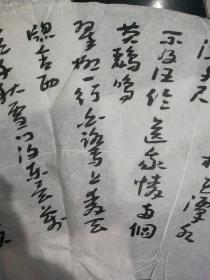 花潭水
千尺
不及汪伦送我情两個
黄鹂鸣
翠柳一行白鹭上青天
窗含西
岭千秋雪门泊东吴万